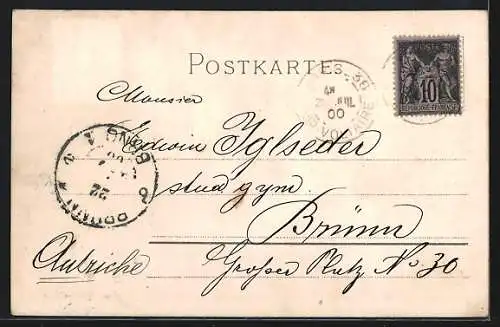 POSTKARTE
10
REPUBLIQUE FRANÇAISE
JUIL
00
VOLTAIRE
Monsieur
Edwin Iglseder
stud. gym.
Brünn
Autriche
Großer Platz No 30
BRÜNN
22